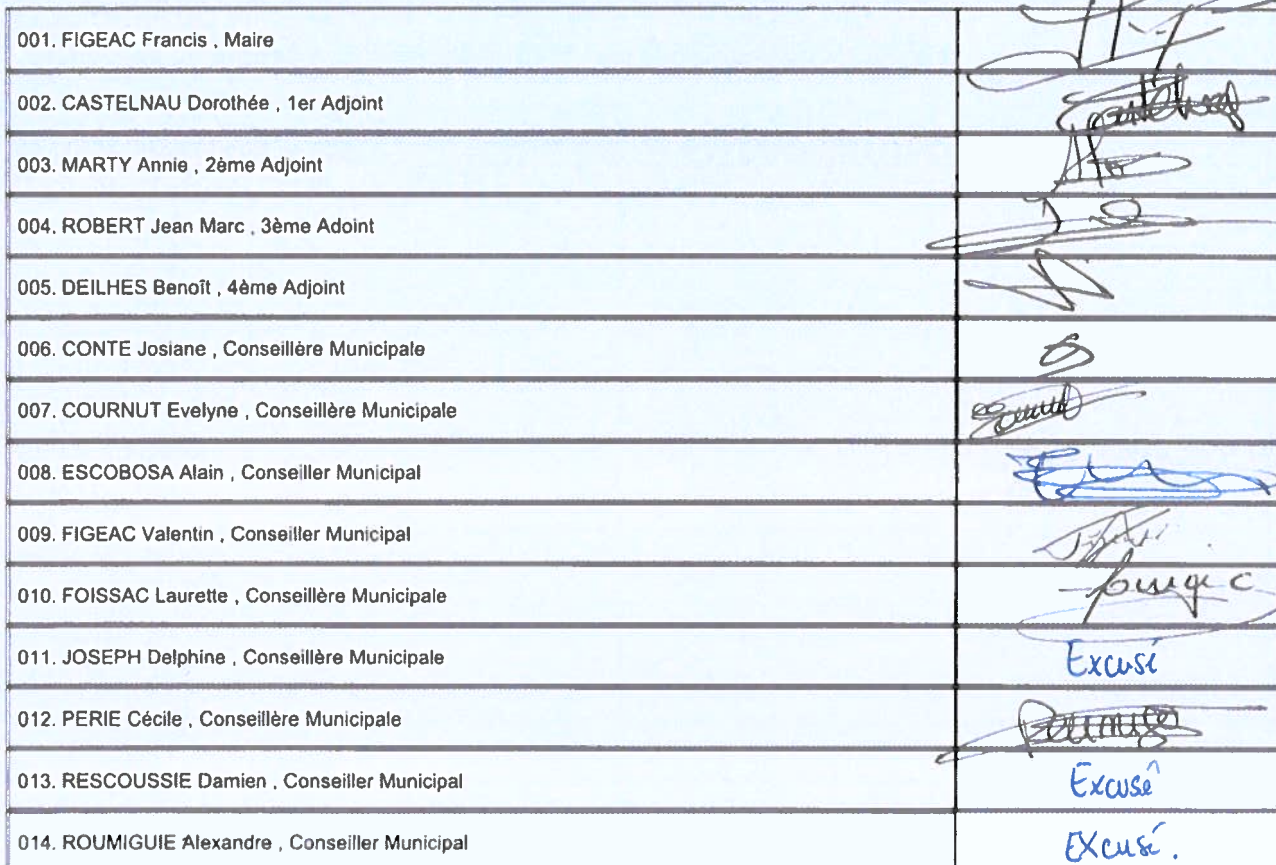 001. FIGEAC Francis , Maire
002. CASTELNAU Dorothée , 1er Adjoint
003. MARTY Annie , 2ème Adjoint
004. ROBERT Jean Marc , 3ème Adoint
005. DEILHES Benoît , 4ème Adjoint
006. CONTE Josiane , Conseillère Municipale
007. COURNUT Evelyne , Conseillère Municipale
008. ESCOBOSA Alain , Conseiller Municipal
009. FIGEAC Valentin , Conseiller Municipal
010. FOISSAC Laurette , Conseillère Municipale
011. JOSEPH Delphine , Conseillère Municipale Excusé
012. PERIE Cécile , Conseillère Municipale
013. RESCOUSSIE Damien , Conseiller Municipal Excusé
014. ROUMIGUIE Alexandre , Conseiller Municipal Excusé.